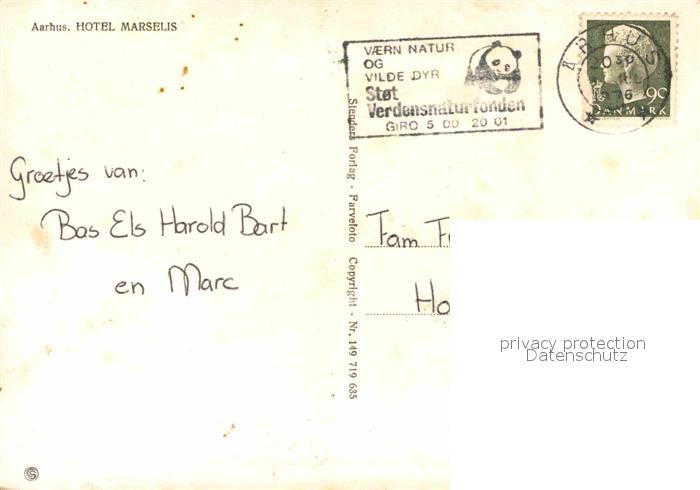 Aarhus. HOTEL MARSELIS
VÆRN NATUR
OG
VILDE DYR
Støt
Verdensnaturfonden
GIRO 5 00 20 01
ÅRHUS
76
90
DANMARK
Groetjes van:
Bas Els Harold Bart
en Marc
Stenders Forlag - Farvefoto Copyright - Nr. 149 719 635
Fam
Ho
privacy protection
Datenschutz